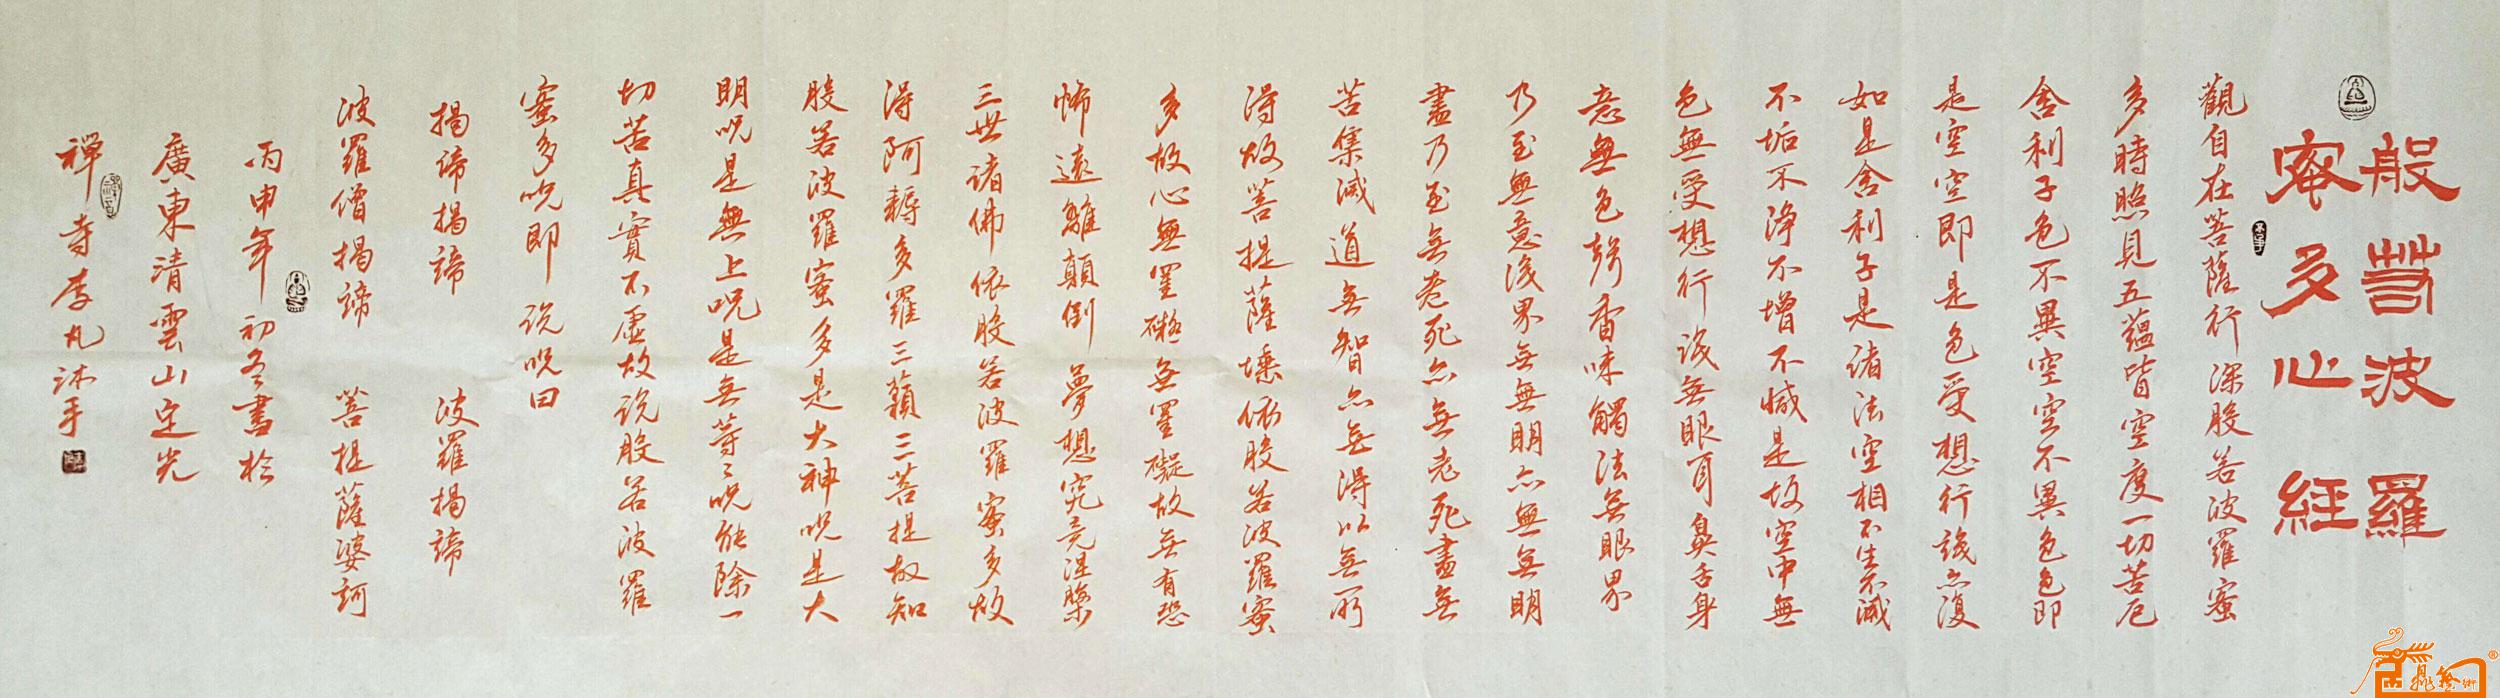 般若波羅
蜜多心經
觀自在菩薩行深般若波羅蜜
多時照見五蘊皆空度一切苦厄
舍利子色不異空空不異色色即
是空空即是色受想行識亦復
如是舍利子是諸法空相不生不滅
不垢不淨不增不減是故空中無
色無受想行識無眼耳鼻舌身
意無色聲香味觸法無眼界
乃至無意識界無無明亦無無明
盡乃至無老死亦無老死盡無
苦集滅道無智亦無得以無所
得故菩提薩埵依般若波羅蜜
多故心無罣礙無罣礙故無有恐
怖遠離顛倒夢想究竟涅槃
三世諸佛依般若波羅蜜多故
得阿耨多羅三藐三菩提故知
般若波羅蜜多是大神咒是大
明咒是無上咒是無等々咒能除一
切苦真實不虛故說般若波羅
蜜多咒即說咒曰
揭諦揭諦 波羅揭諦
波羅僧揭諦 菩提薩婆訶
丙申年初冬書於
廣東清雲山定光
禪寺李丸沐手